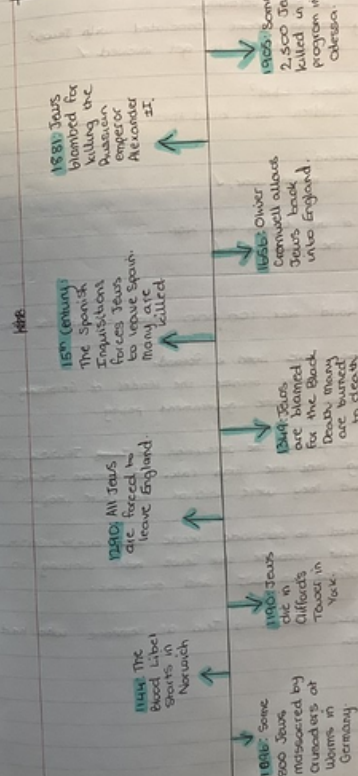 1096: Some
800 Jews
massacred by
crusaders at
Worms in
Germany.
1144: The
Blood Libel
starts in
Norwich
1190: Jews
die in
Clifford's
Tower in
York.
1290: All Jews
are forced to
leave England.
1349: Jews
are blamed
for the Black
Death many
are burned
to death
15th Century:
The Spanish
Inquisitions
forces Jews
to leave Spain.
Many are
killed
1656: Oliver
Cromwell allows
Jews back
into England.
1881: Jews
blambed for
killing the
Russian
emperor
Alexander
II.
1905: Some
2,500 Je
killed in
program i
Odessa.